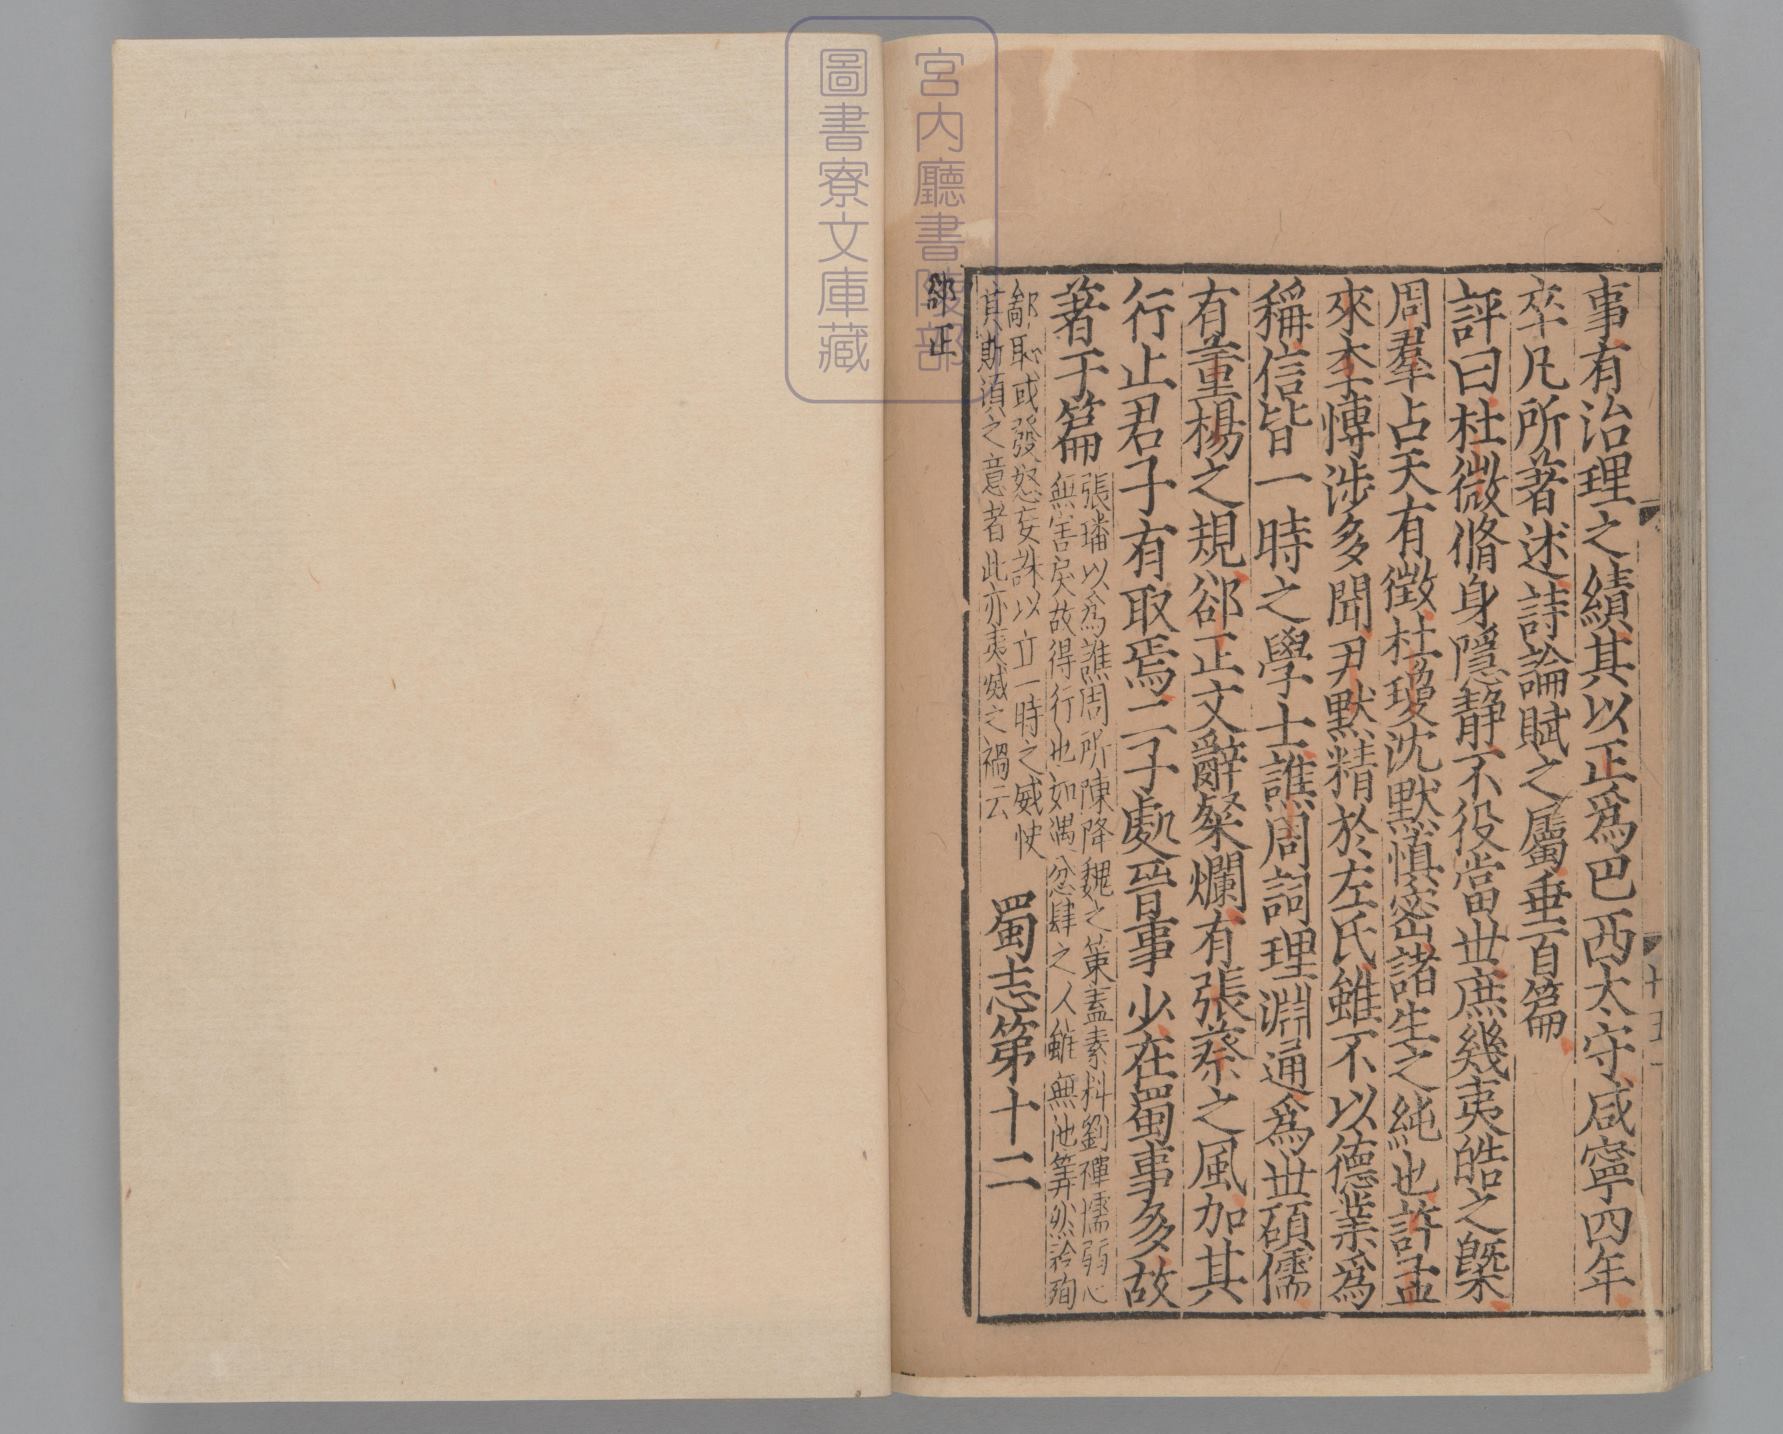 事有治理之績其以正爲巴西太守咸寧四年
卒凡所著述詩論賦之屬垂百篇
評曰杜微脩身隱靜不役當世庶幾夷皓之槩
周羣占天有徵杜瓊沈默愼密諸生之純也許孟
來李博涉多聞尹默精於左氏雖不以德業爲
稱信皆一時之學士譙周詞理淵通爲世碩儒
有董楊之規郤正文辭粲爛有張蔡之風加其
行止君子有取焉二子處晉事少在蜀事多故
著于篇
張璠以爲譙周所陳降魏之策蓋素料劉禪懦弱心
無害戾故得行也如遇忿肆之人雖無他筭然矜殉
鄙恥或發怒妄誅以立一時之威快
其斯須之意者此亦夷滅之禍云
蜀志第十二
郤正
十五
宮内廳書陵部
圖書寮文庫藏